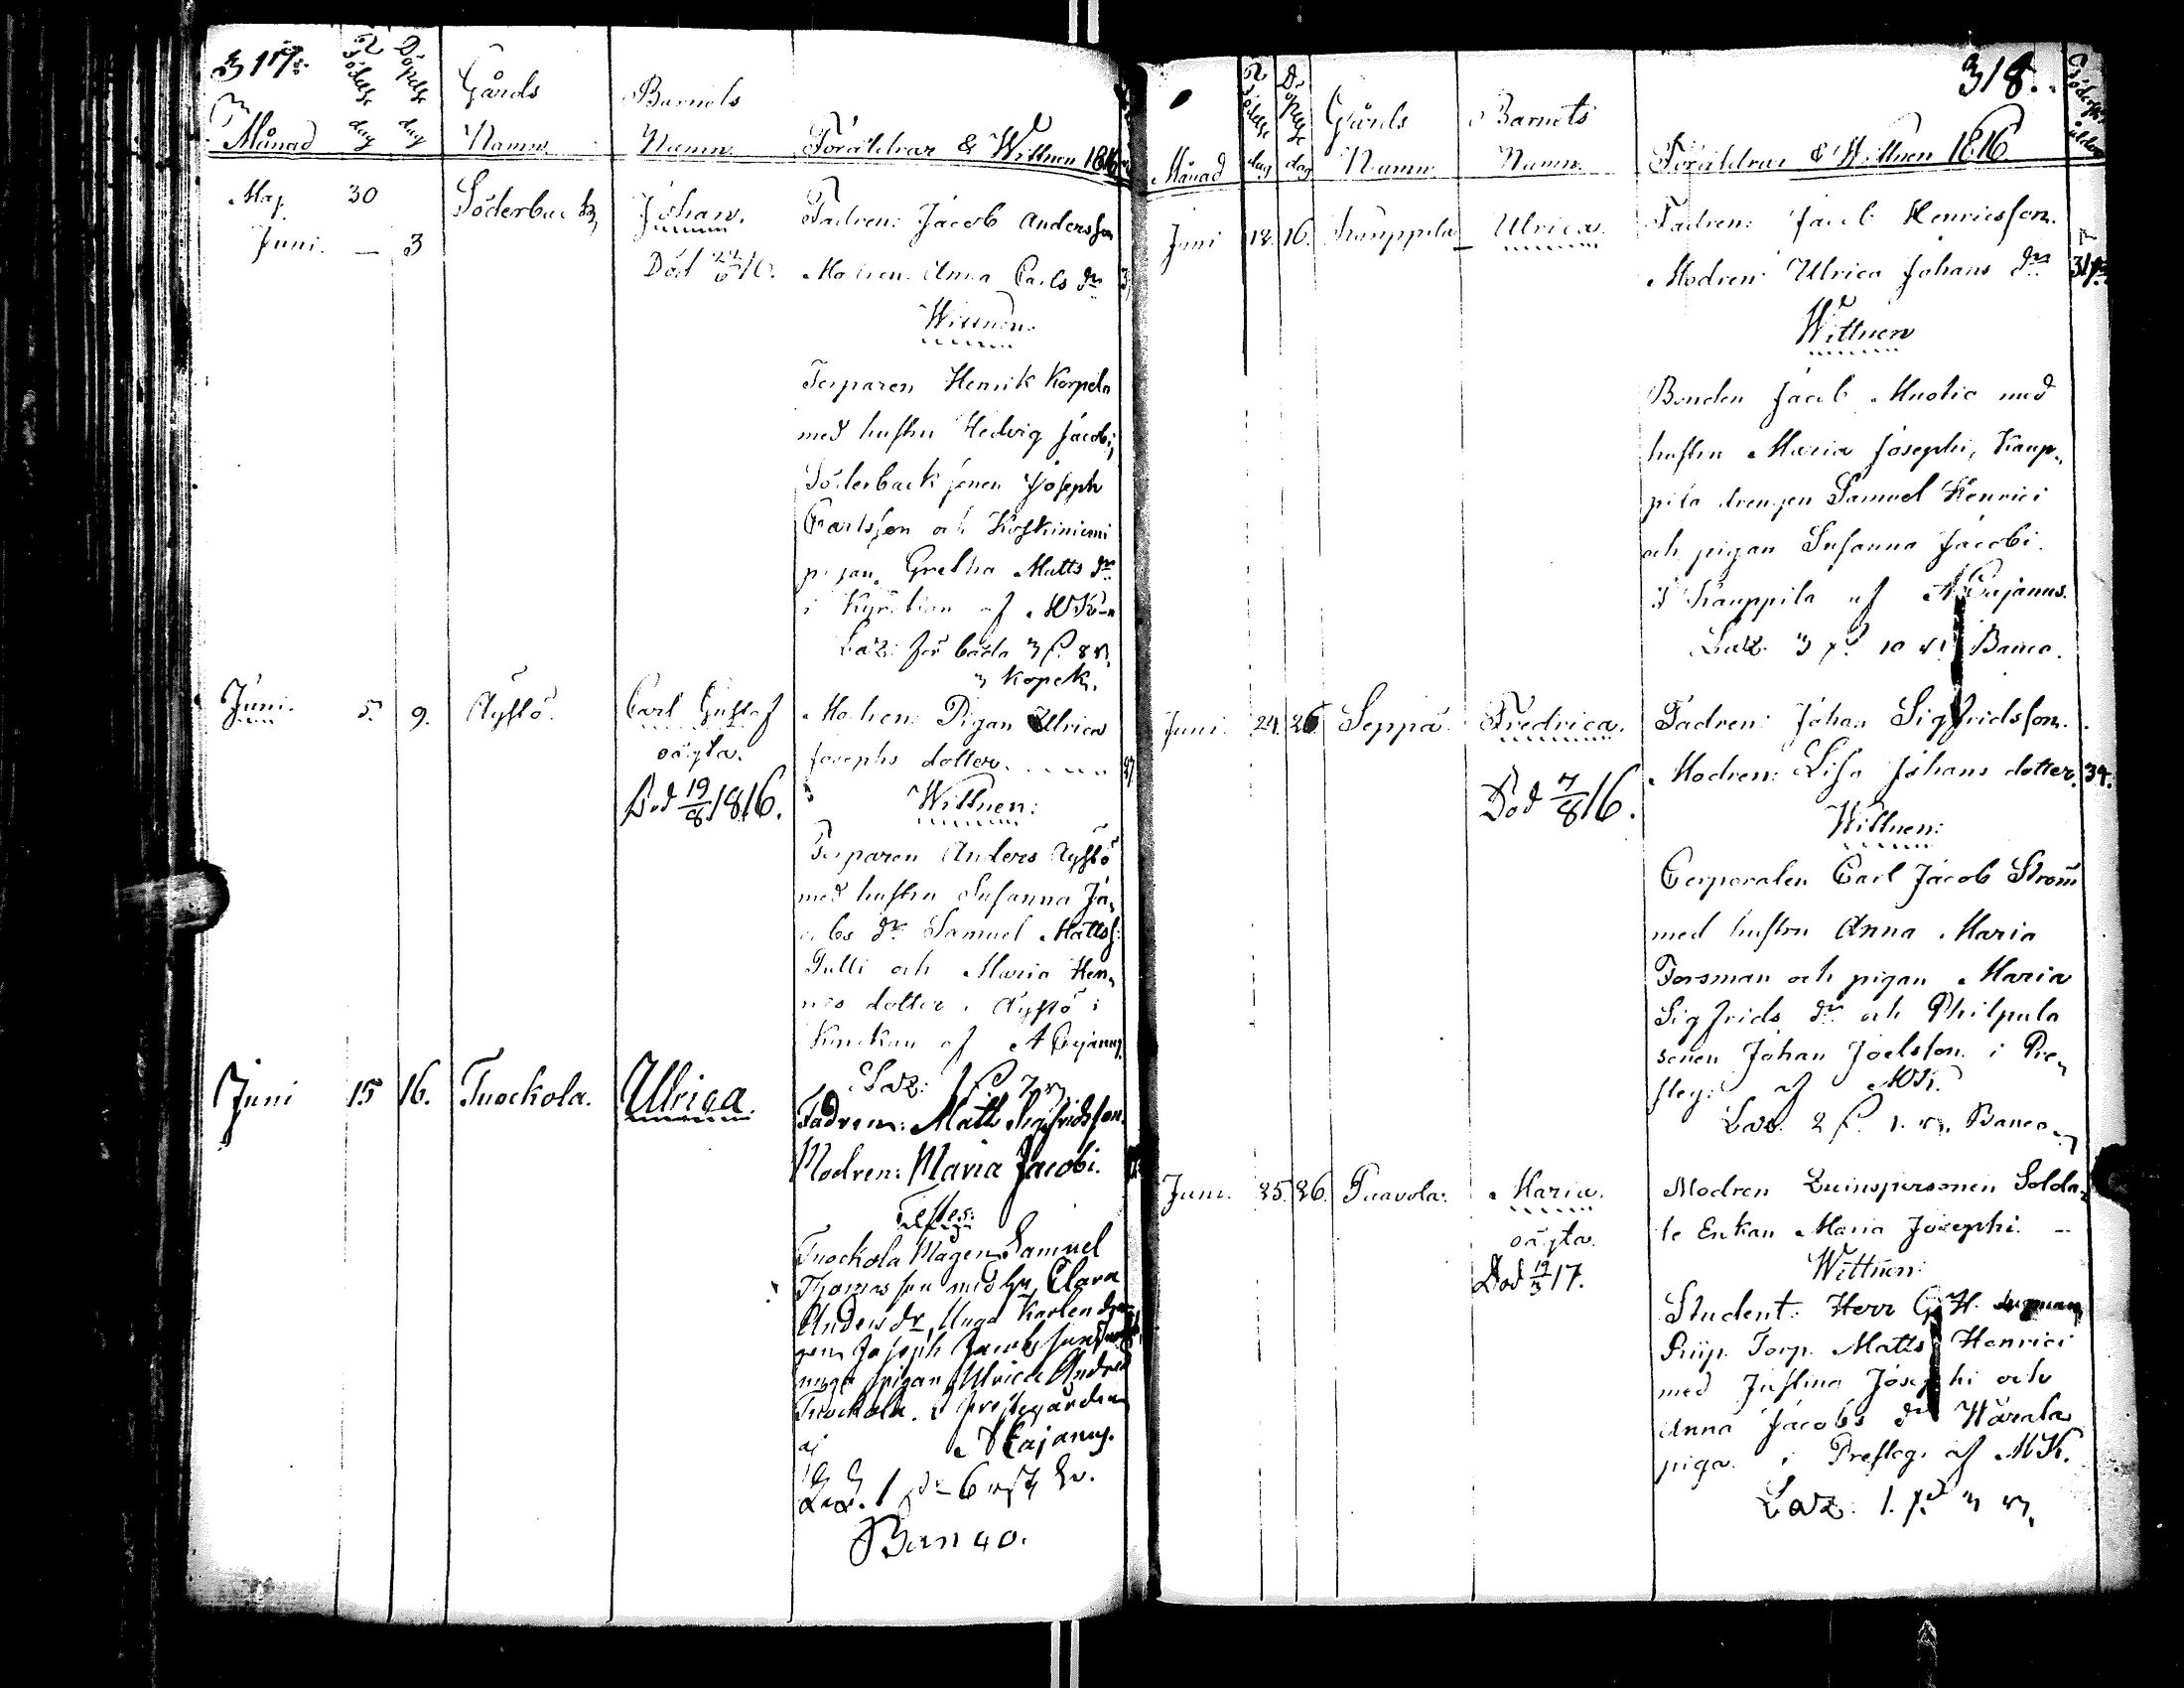 317.
Födelse dag
Döpelse dag
Gårds
Barnets
Månad
Namn
Namn
Föräldrar & Wittnen 1816
Maj. 30 Söderback Johan. Fadren: Jacob Andersson
Juni. — 3
Död 16. Modren: Anna Carls dr
Wittnen:
Torparen Henrik Korpela
med hustru Hedvig Jacobi,
Söderback sonen Joseph
Carlsson och Koskiniemi
pigan Gretha Matts dr
i Kyrckan af MK
Laz: för båda 3 s. 8 r.
3 kopek.
Juni. 5. 9. Äystö. Carl Gustaf Modren: Pigan Ulrica
oägta. Josephs dotter.
Död 19/8 1816. Wittnen:
Torparen Anders Äystö
med hustru Susanna Ja-
cobs dr Samuel Mattss:
Pulli och Maria Hen-
rics dotter Äystö i
Kirckan af A Cajanus
Laz:
Juni 15 16. Tuockola. Ulrica. Fadren: Matts Sigfridsson.
Modren: Maria Jacobi.
Testes:
Tuockola Mågen Samuel
Thomasson med hu Clara
Anders dr, Unga Karlen
Joseph Jacobsson
unga pigan Ulrica
Tuockola. i prestegården
af A Cajanus.
Laz. 1 6
Banco.
318.
Födelse dag
Döpelse dag
Gårds
Barnets
Månad
Namn
Namn
Föräldrar & Wittnen 1816
Juni 12. 16. Kauppila Ulrica. Fadren: Jacob Henricsson.
Modren: Ulrica Johans dr
Wittnen
Bonden Jacob Muotio med
hustru Maria Josephi, Kaup-
pila drengen Samuel Henrici
och pigan Susanna Jacobi.
i Kauppila af A Cajanus.
Laz. 3 10 Banco.
Juni. 24. 26 Seppä Fredrica. Fadren: Johan Sigfridsson.
Modren: Lisa Johans dotter. 34.
Död 7/8 16.
Wittnen:
Corporalen Carl Jacob Ström
med hustru Anna Maria
Forsman och pigan Maria
Sigfrids dr och Philpula
sonen Johan Joelsson i Pre-
steg: af MK.
Laz. 2 1. Banco
Juni. 25. 26. Puavola. Maria. Modren Qvinspersonen Solda-
oägta. te Enkan Maria Josephi. —
Död 19/3 17. Wittnen:
Student: Herr G. H.
Torp. Matts Henrici
med Justina Josephi och
Anna Jacobs dr Wärala
piga i Presteg. af MK.
Laz: 1. 3